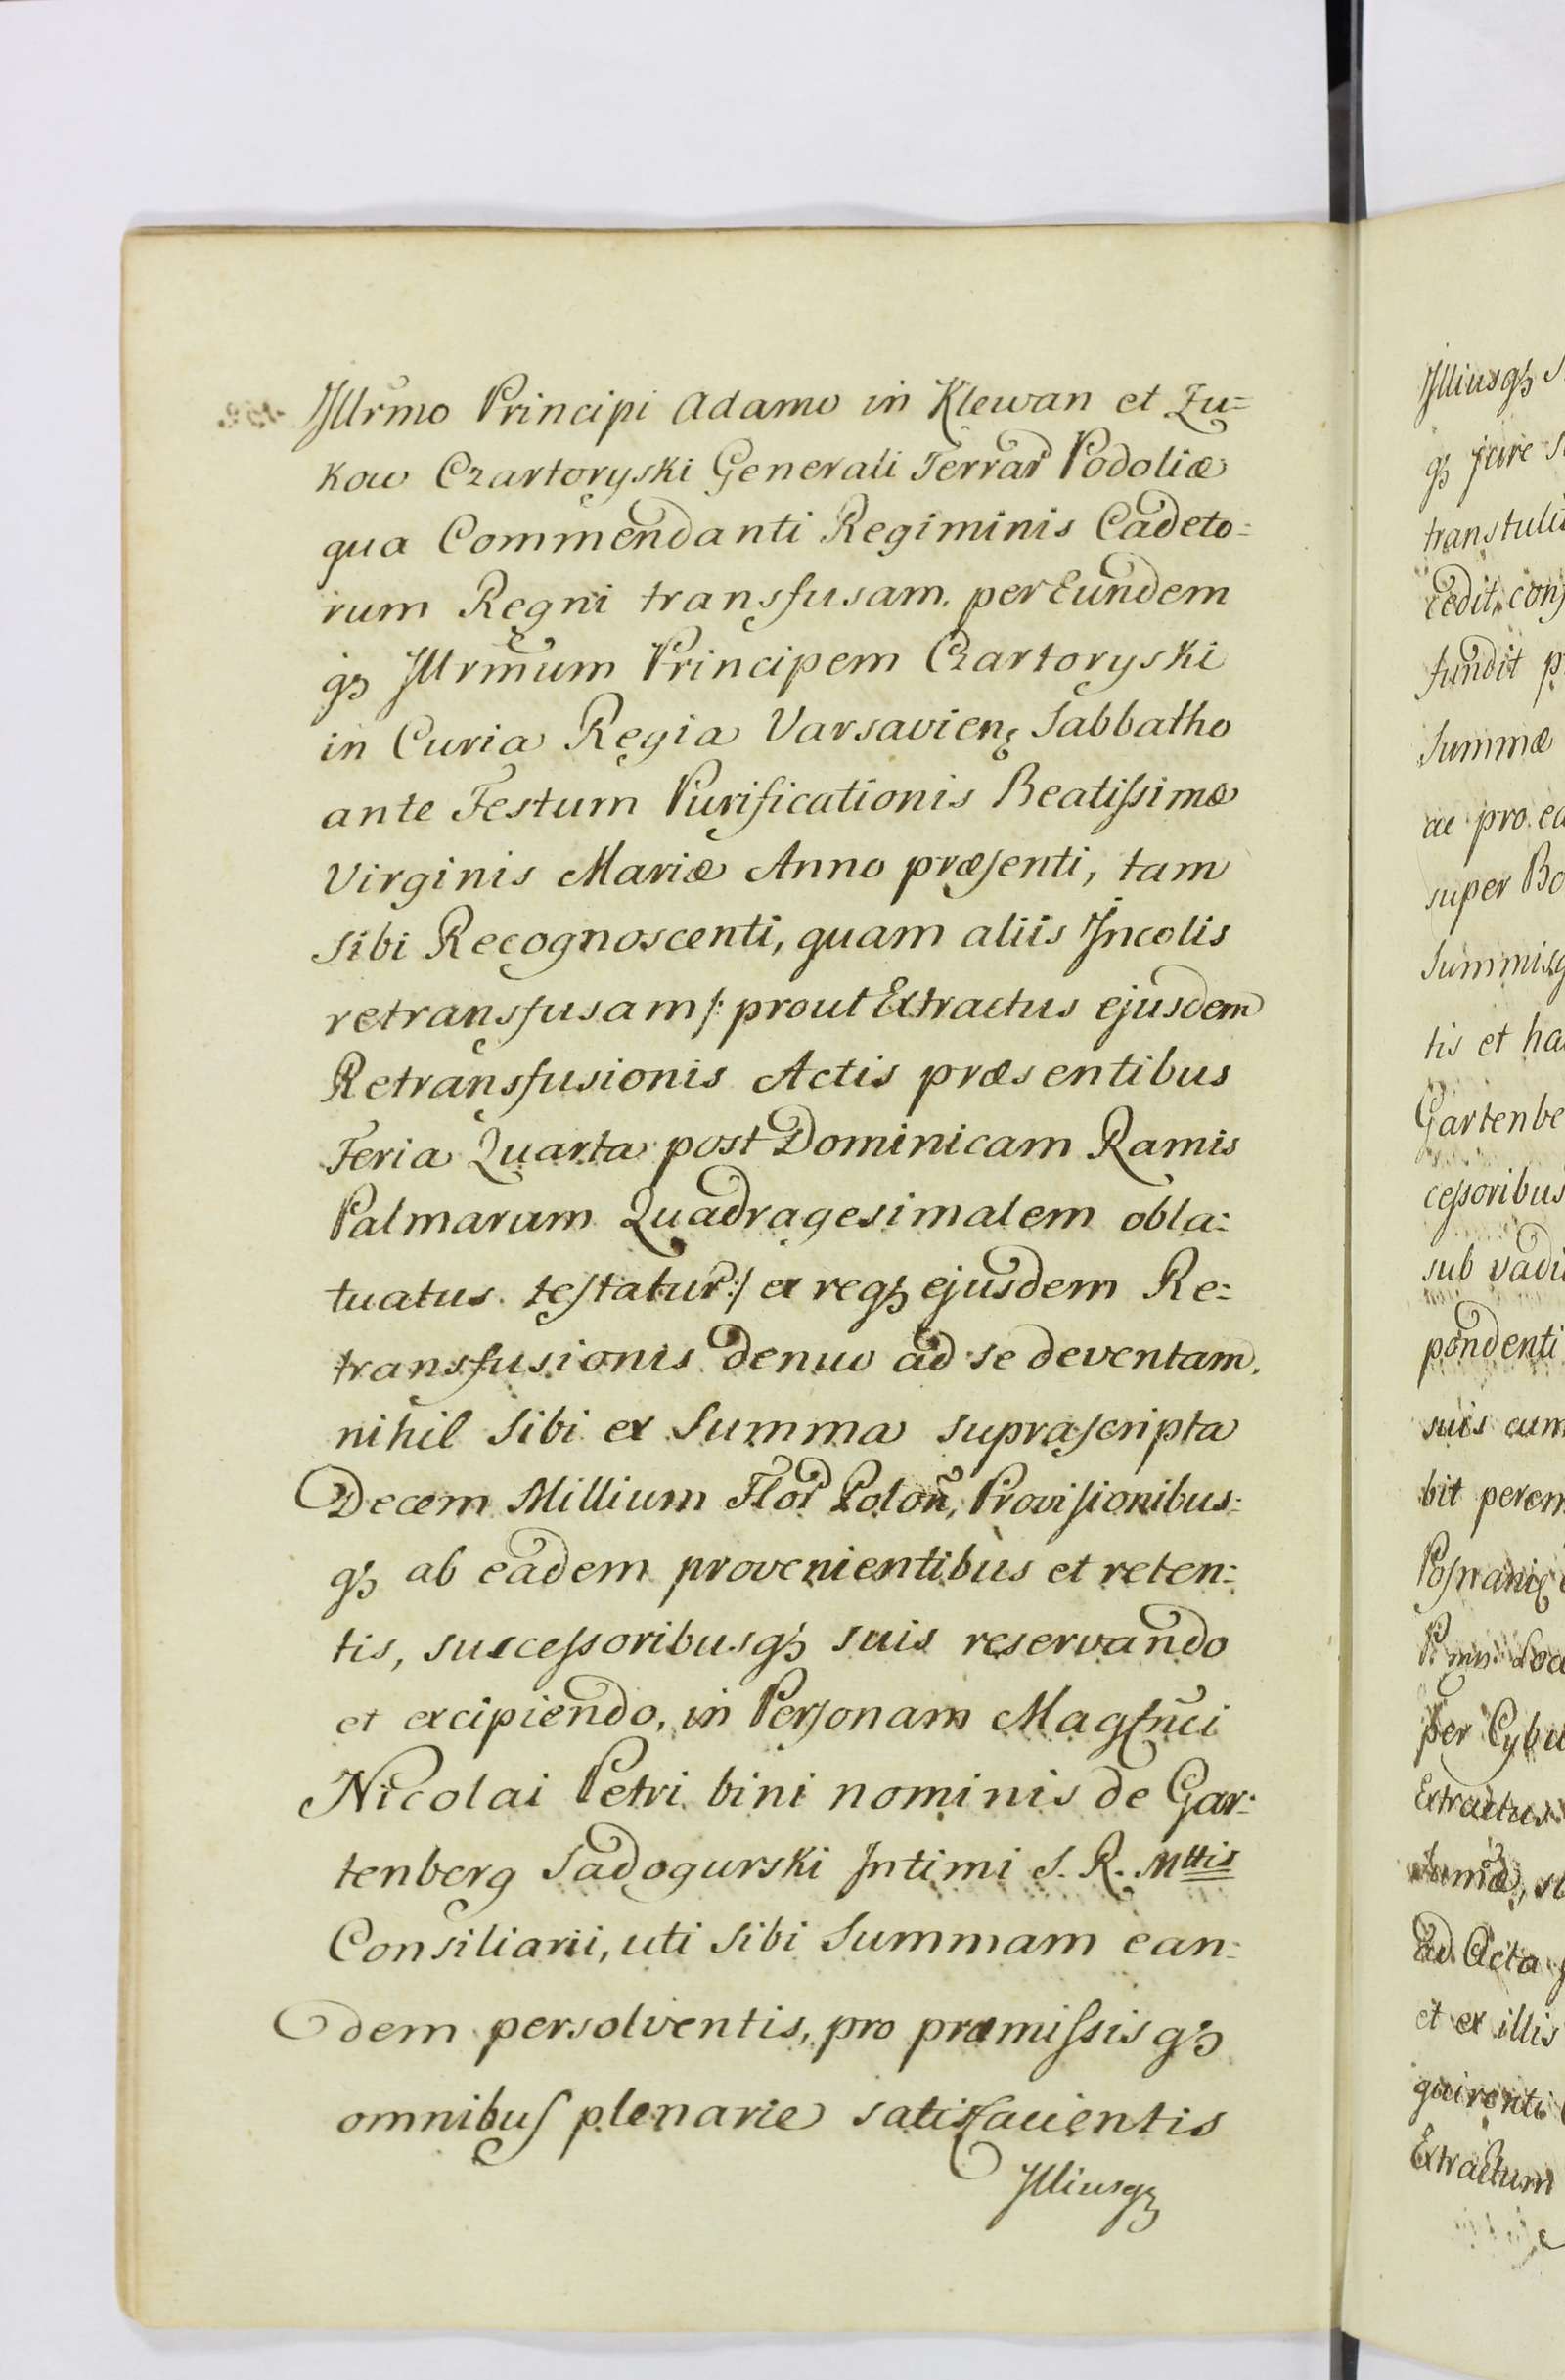 Jllrmo Principi Adamo in Klewan et Zu=
kow Czartoryski Generali Terrar Podoliæ
qua Commendanti Regiminis Cadeto=
rum Regni transfusam. per Eundem
qȝ Jllrmum Principem Czartoryski
in Curia Regia Varsavien Sabbatho
ante Festum Purificationis Beatissimæ
Virginis Mariæ Anno præsenti, tam
sibi Recognoscenti, quam aliis Jncolis
retransfusam /: prout Extractus ejusdem
Retransfusionis Actis præsentibus
Feria Quarta post Dominicam Ramis
Palmarum Quadragesimalem obla=
tuatus testatur :/ ex reqȝ ejusdem Re=
transfusionis denuo ad se deventam,
nihil sibi ex Summa suprascripta
Decem Millium Flor Polon̄, Provisionibus=
qȝ ab eadem provenientibus et reten=
tis, successoribusqȝ suis reservando
et excipiendo, in Personam Magfn̄ci
Nicolai Petri bini nominis de Gar=
tenberg Sadogurski Jntimi S. R. Mttis
Consiliarii, uti sibi Summam ean=
dem persolventis, pro præmissisqȝ
omnibus plenarie satisfacientis
Jlliusqȝ
Jlliusqȝ
qȝ jure
cedit, con
fundit
Summæ
ac pro ea
super Bo
tis et ha
Gartenbe
cessoribus
sub vadi
pondenti
suis cum
bit perem
per Cybu
Extractus
ad Acta
et ex illis
quirenti
Extractum